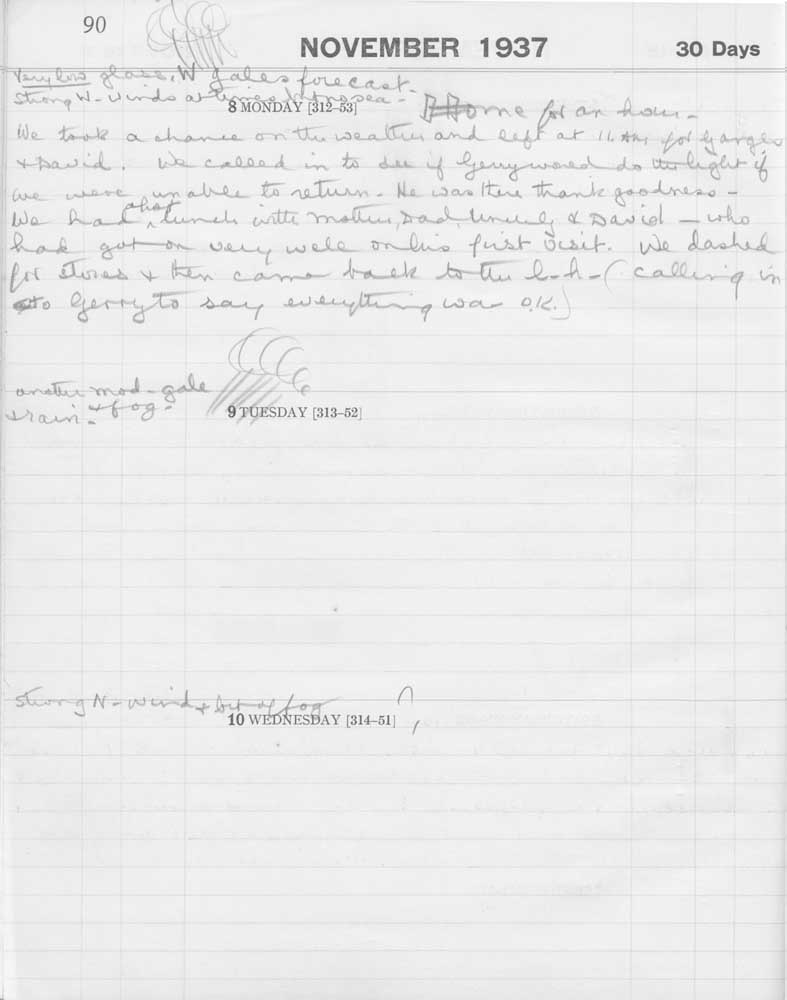 90
NOVEMBER 1937
30 Days
Very low glass, W gales forecast -
Strong W - winds at times & sea -
8 MONDAY [312–53]
Home for an hour -
We took a chance on the weather and left at 11. AM, for Ganges
& David. We called in to see if Gerry would do the light if
we were unable to return - He was there thank goodness -
We had a hot lunch with mother, Dad, & David — who
had got on very well on his first visit. We dashed
for stores & then came back to the l-h- (calling in
to Gerry to say everything was O.K.)
another mod - gale
& rain - & fog -
9 TUESDAY [313–52]
Strong N - wind & bit of fog
10 WEDNESDAY [314–51]